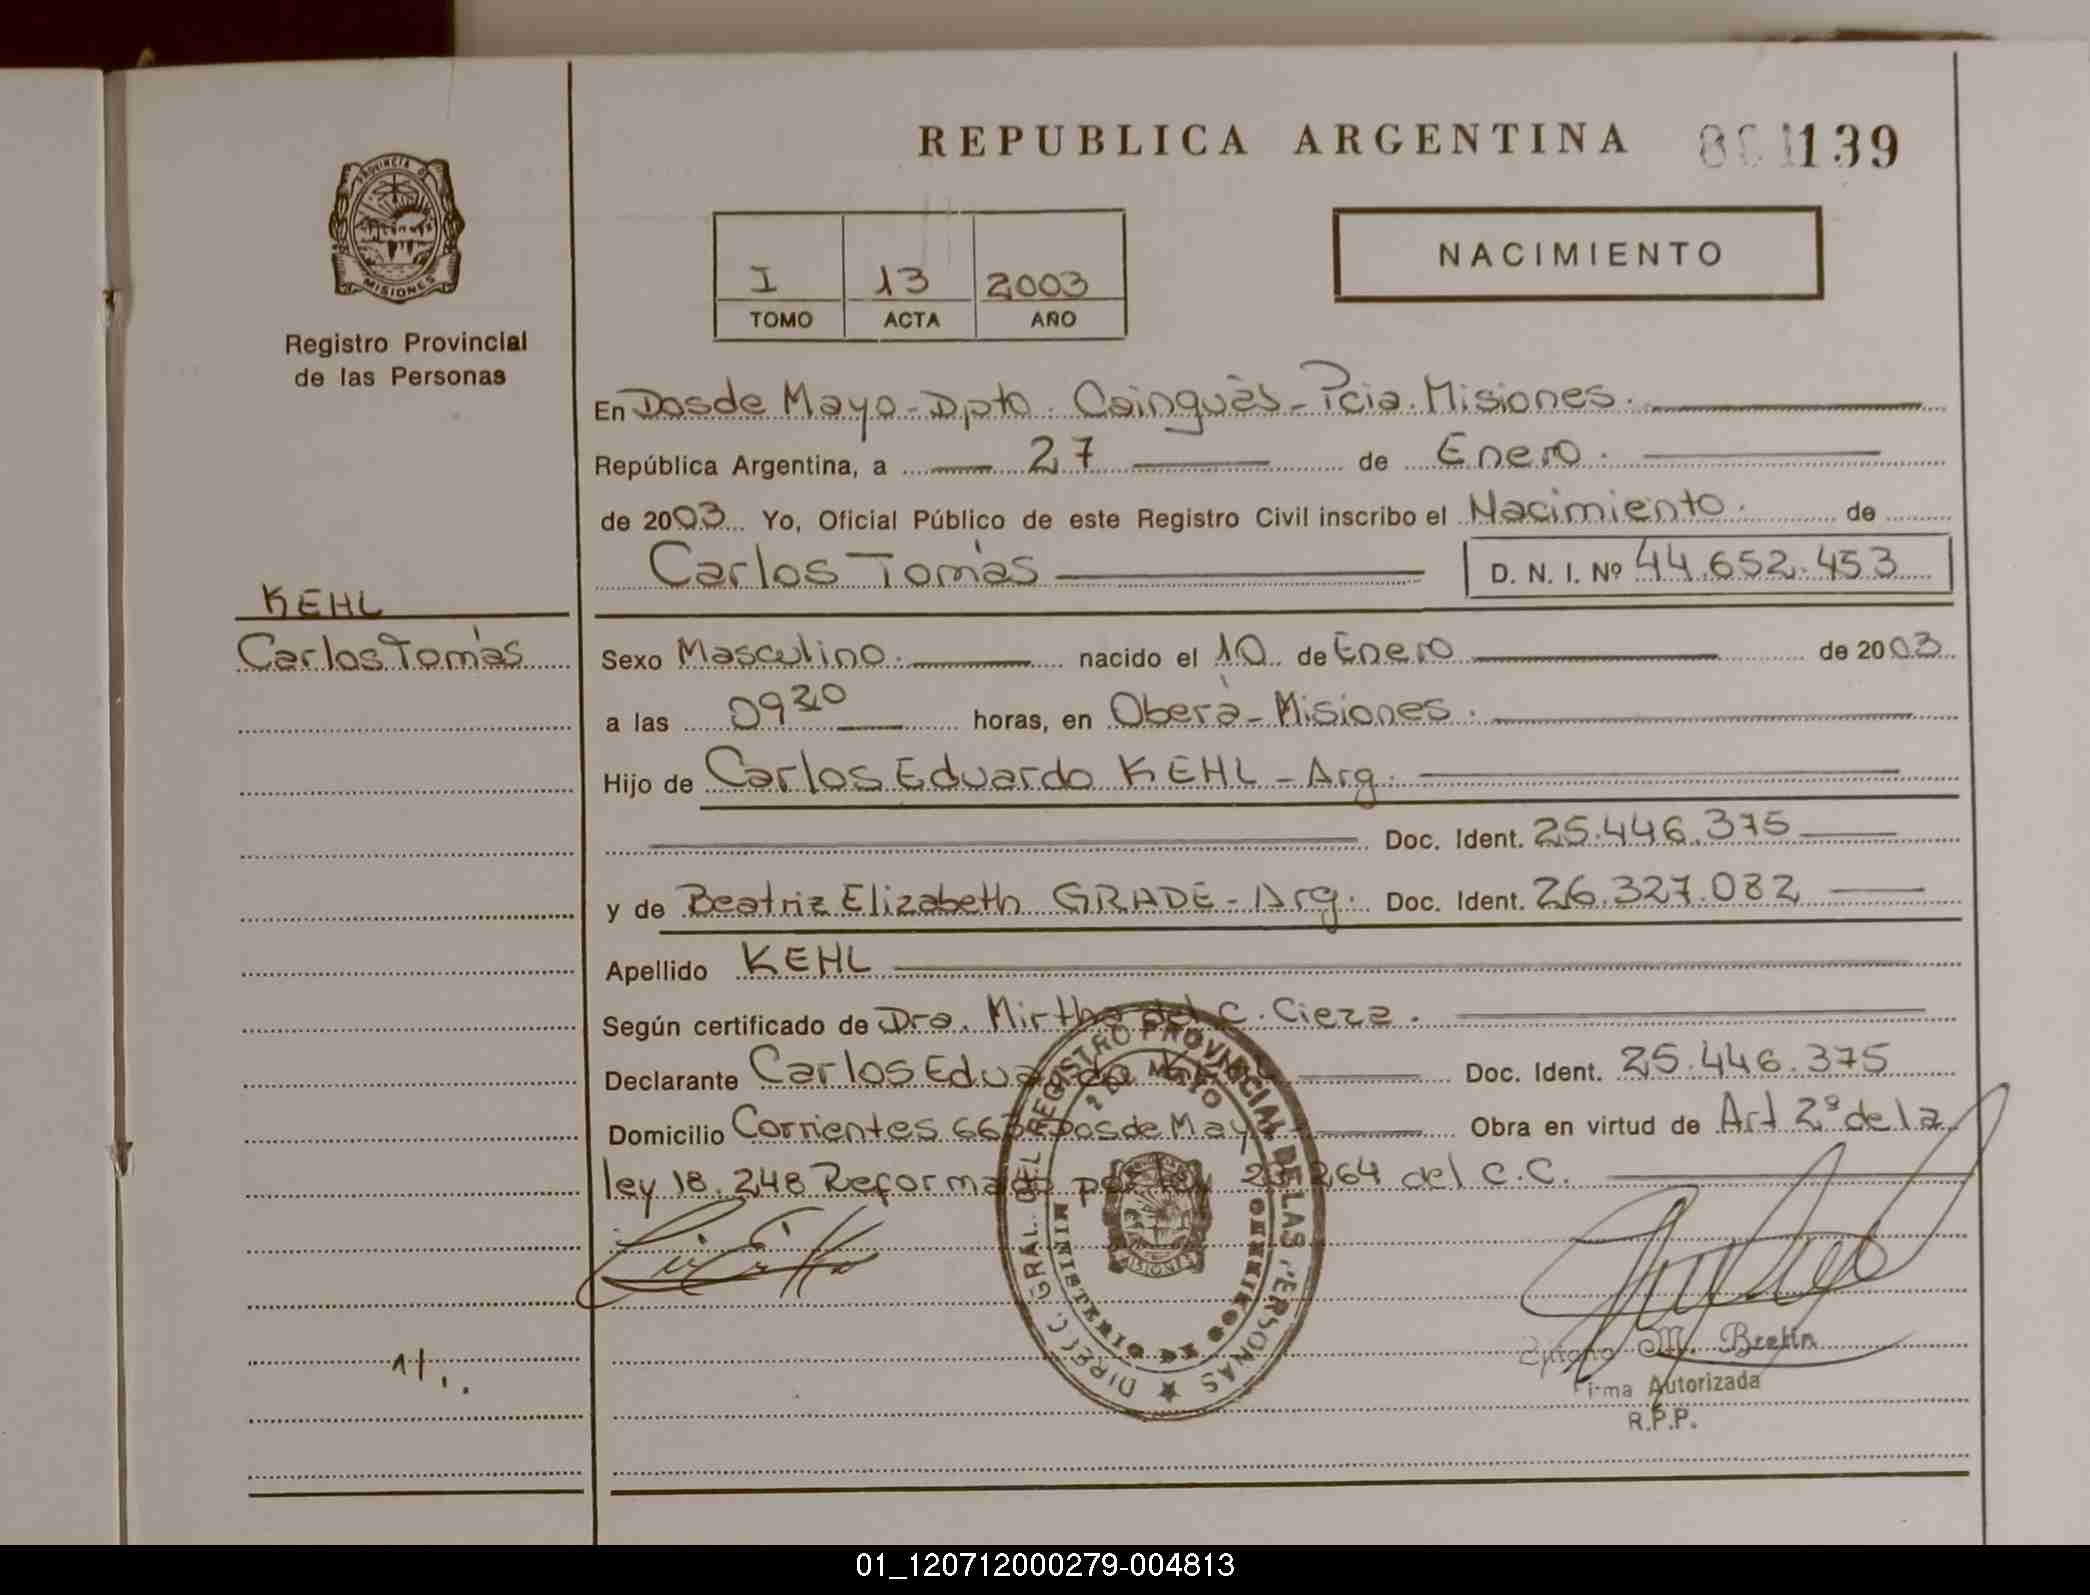 REPUBLICA ARGENTINA 139
PROVINCIA DE
MISIONES
Registro Provincial
de las Personas
I 13 2003
TOMO ACTA AÑO
NACIMIENTO
En Dos de Mayo - Dpto. Cainguàs - Pcia. Misiones.
República Argentina, a 27 de Enero.
de 2003 Yo, Oficial Público de este Registro Civil inscribo el Nacimiento. de
Carlos Tomás D. N. I. Nº 44.652.453
KEHL
Carlos Tomás
Sexo Masculino. nacido el 10 de Enero de 2003
a las 0920 horas, en Oberà - Misiones.
Hijo de Carlos Eduardo KEHL - Arg.
Doc. Ident. 25.446.375
y de Beatriz Elizabeth GRADE - Arg. Doc. Ident. 26.327.082
Apellido KEHL
Según certificado de Dra. Mirtha del C. Cieza.
Declarante Carlos Eduardo Doc. Ident. 25.446.375
Domicilio Corrientes Dos de Mayo Obra en virtud de Art 2º de la
ley 18.248 Reformado por ley 23.264 del C.C.
DIRECC. GRAL. DEL REGISTRO PROVINCIAL DE LAS PERSONAS
2 DE MAYO
MINISTERIO DE GOBIERNO
MISIONES
M. Bretin
Firma Autorizada
R.P.P.
01_120712000279-004813